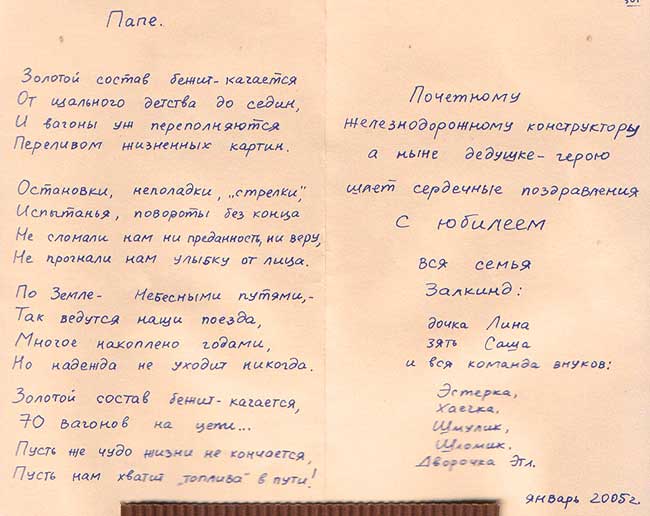 Папе.
Золотой состав бежит-качается
От шального детства до седин,
И вагоны уж переполняются
Переливом жизненных картин.
Остановки, неполадки, „стрелки",
Испытанья, повороты без конца
Не сломали нам ни преданность, ни веру,
Не прогнали нам улыбку от лица.
По Земле- Небесными путями,-
Так ведутся наши поезда,
Многое накоплено годами,
Но надежда не уходит никогда.
Золотой состав бежит-качается,
70 вагонов на цепи...
Пусть же чудо жизни не кончается,
Пусть нам хватит „топлива" в пути!
Почетному
железнодорожному конструктору
а ныне дедушке-герою
шлет сердечные поздравления
с юбилеем
вся семья
Залкинд:
дочка Лина
зять Саша
и вся команда внуков:
Эстерка,
Хаечка,
Шмулик,
Шломик.
Дворочка Этл.
январь 2005г.